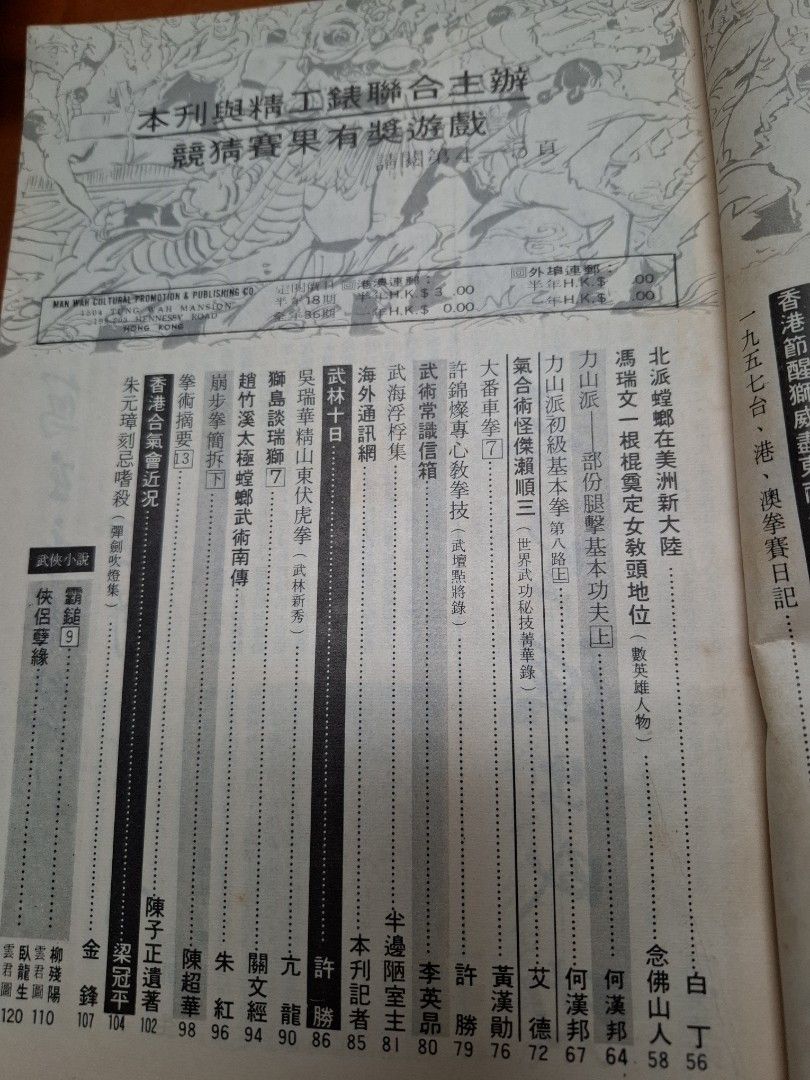 本刊與精工錶聯合主辦
競猜賽果有獎遊戲
請閱第4—5頁
MAN WAH CULTURAL PROMOTION & PUBLISHING CO.
1504 TUNG WAH MANSION
199-203 HENNESSY ROAD
HONG KONG
半年18期
全年36期
港澳連郵：
半年H.K.$
外埠連郵：
半年H.K.$
北派螳螂在美洲新大陸……白丁 56
馮瑞文一根棍奠定女教頭地位（數英雄人物）……念佛山人 58
力山派——部份腿擊基本功夫上……何漢邦 64
力山派初級基本拳第八路上……何漢邦 67
氣合術怪傑瀨順三（世界武功秘技菁華錄）……艾德 72
大番車拳7……黃漢勛 76
許錦燦專心教拳技（武壇點將錄）……許勝 79
武術常識信箱……李英昂 80
武海浮桴集……半邊陋室主 81
海外通訊網……本刊記者 85
武林十日……許勝 86
吳瑞華精山東伏虎拳（武林新秀）……亢龍 90
獅島談瑞獅7……關文經 94
趙竹溪太極螳螂武術南傳……朱紅 96
崩步拳簡拆下……陳超華 98
拳術摘要13……陳子正遺著 102
香港合氣會近況……梁冠平 104
朱元璋刻忌嗜殺（彈劍吹燈集）……金鋒 107
武俠小說
霸鎚9……柳殘陽 雲君圖 110
俠侶孽緣……臥龍生 雲君圖 120
香港節醒獅
一九五七台、港、澳拳賽日記